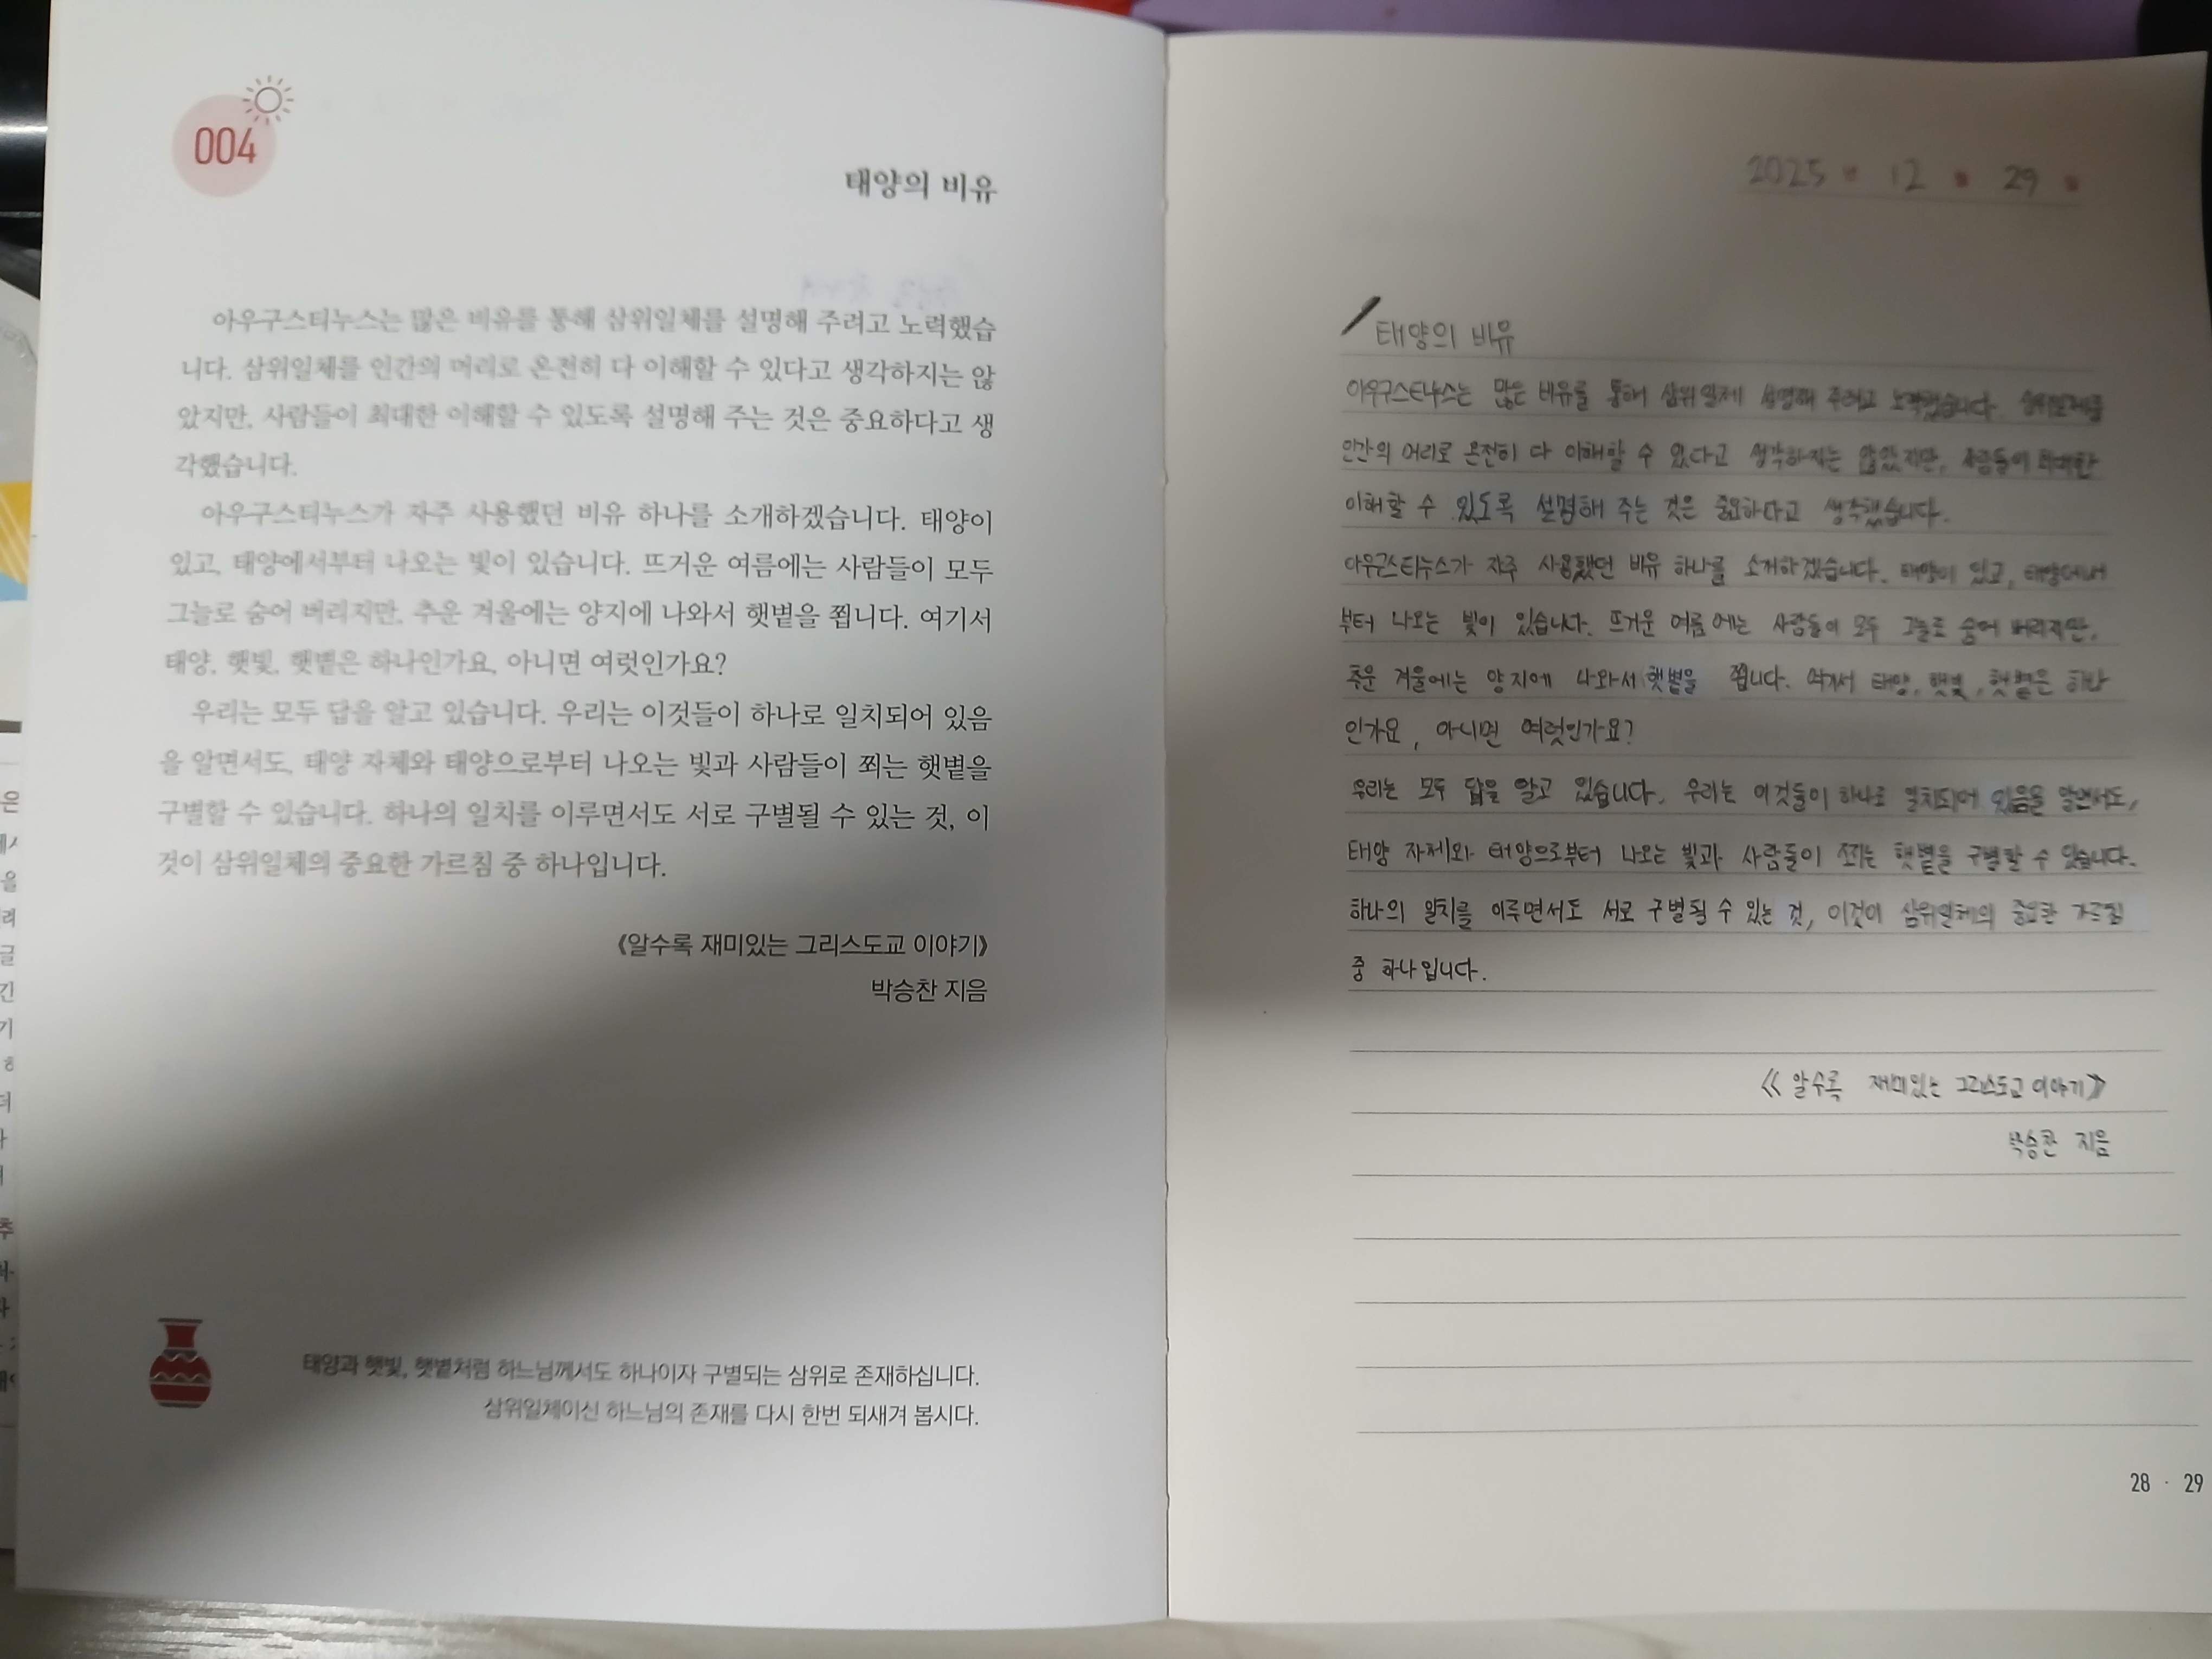 004
태양의 비유
아우구스티누스는 많은 비유를 통해 삼위일체를 설명해 주려고 노력했습
니다. 삼위일체를 인간의 머리로 온전히 다 이해할 수 있다고 생각하지는 않
았지만, 사람들이 최대한 이해할 수 있도록 설명해 주는 것은 중요하다고 생
각했습니다.
아우구스티누스가 자주 사용했던 비유 하나를 소개하겠습니다. 태양이
있고, 태양에서부터 나오는 빛이 있습니다. 뜨거운 여름에는 사람들이 모두
그늘로 숨어 버리지만, 추운 겨울에는 양지에 나와서 햇볕을 쬡니다. 여기서
태양, 햇빛, 햇볕은 하나인가요, 아니면 여럿인가요?
우리는 모두 답을 알고 있습니다. 우리는 이것들이 하나로 일치되어 있음
을 알면서도, 태양 자체와 태양으로부터 나오는 빛과 사람들이 쬐는 햇볕을
구별할 수 있습니다. 하나의 일치를 이루면서도 서로 구별될 수 있는 것, 이
것이 삼위일체의 중요한 가르침 중 하나입니다.
《알수록 재미있는 그리스도교 이야기》
박승찬 지음
태양과 햇빛, 햇볕처럼 하느님께서도 하나이자 구별되는 삼위로 존재하십니다.
삼위일체이신 하느님의 존재를 다시 한번 되새겨 봅시다.
2025 12 29
태양의 비유
아우구스티누스는 많은 비유를 통해 삼위일체 설명해 주려고 노력했습니다. 삼위일체를
인간의 머리로 온전히 다 이해할 수 있다고 생각하지는 않았지만, 사람들이 최대한
이해할 수 있도록 설명해 주는 것은 중요하다고 생각했습니다.
아우구스티누스가 자주 사용했던 비유 하나를 소개하겠습니다. 태양이 있고, 태양에서
부터 나오는 빛이 있습니다. 뜨거운 여름에는 사람들이 모두 그늘로 숨어 버리지만,
추운 겨울에는 양지에 나와서 햇볕을 쬡니다. 여기서 태양, 햇빛, 햇볕은 하나
인가요, 아니면 여럿인가요?
우리는 모두 답을 알고 있습니다. 우리는 이것들이 하나로 일치되어 있음을 알면서도,
태양 자체와 태양으로부터 나오는 빛과 사람들이 쬐는 햇볕을 구별할 수 있습니다.
하나의 일치를 이루면서도 서로 구별될 수 있는 것, 이것이 삼위일체의 중요한 가르침
중 하나입니다.
《알수록 재미있는 그리스도교 이야기》
박승찬 지음
28 · 29